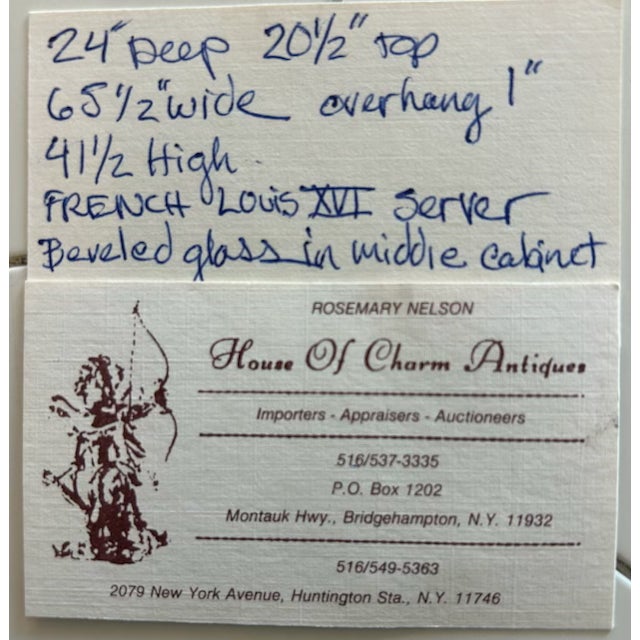 24" Deep 20½" top
65½" wide overhang 1"
41½ High
FRENCH LOUIS XVI Server
Beveled glass in middle cabinet
ROSEMARY NELSON
House Of Charm Antiques
Importers - Appraisers - Auctioneers
516/537-3335
P.O. Box 1202
Montauk Hwy., Bridgehampton, N.Y. 11932
516/549-5363
2079 New York Avenue, Huntington Sta., N.Y. 11746